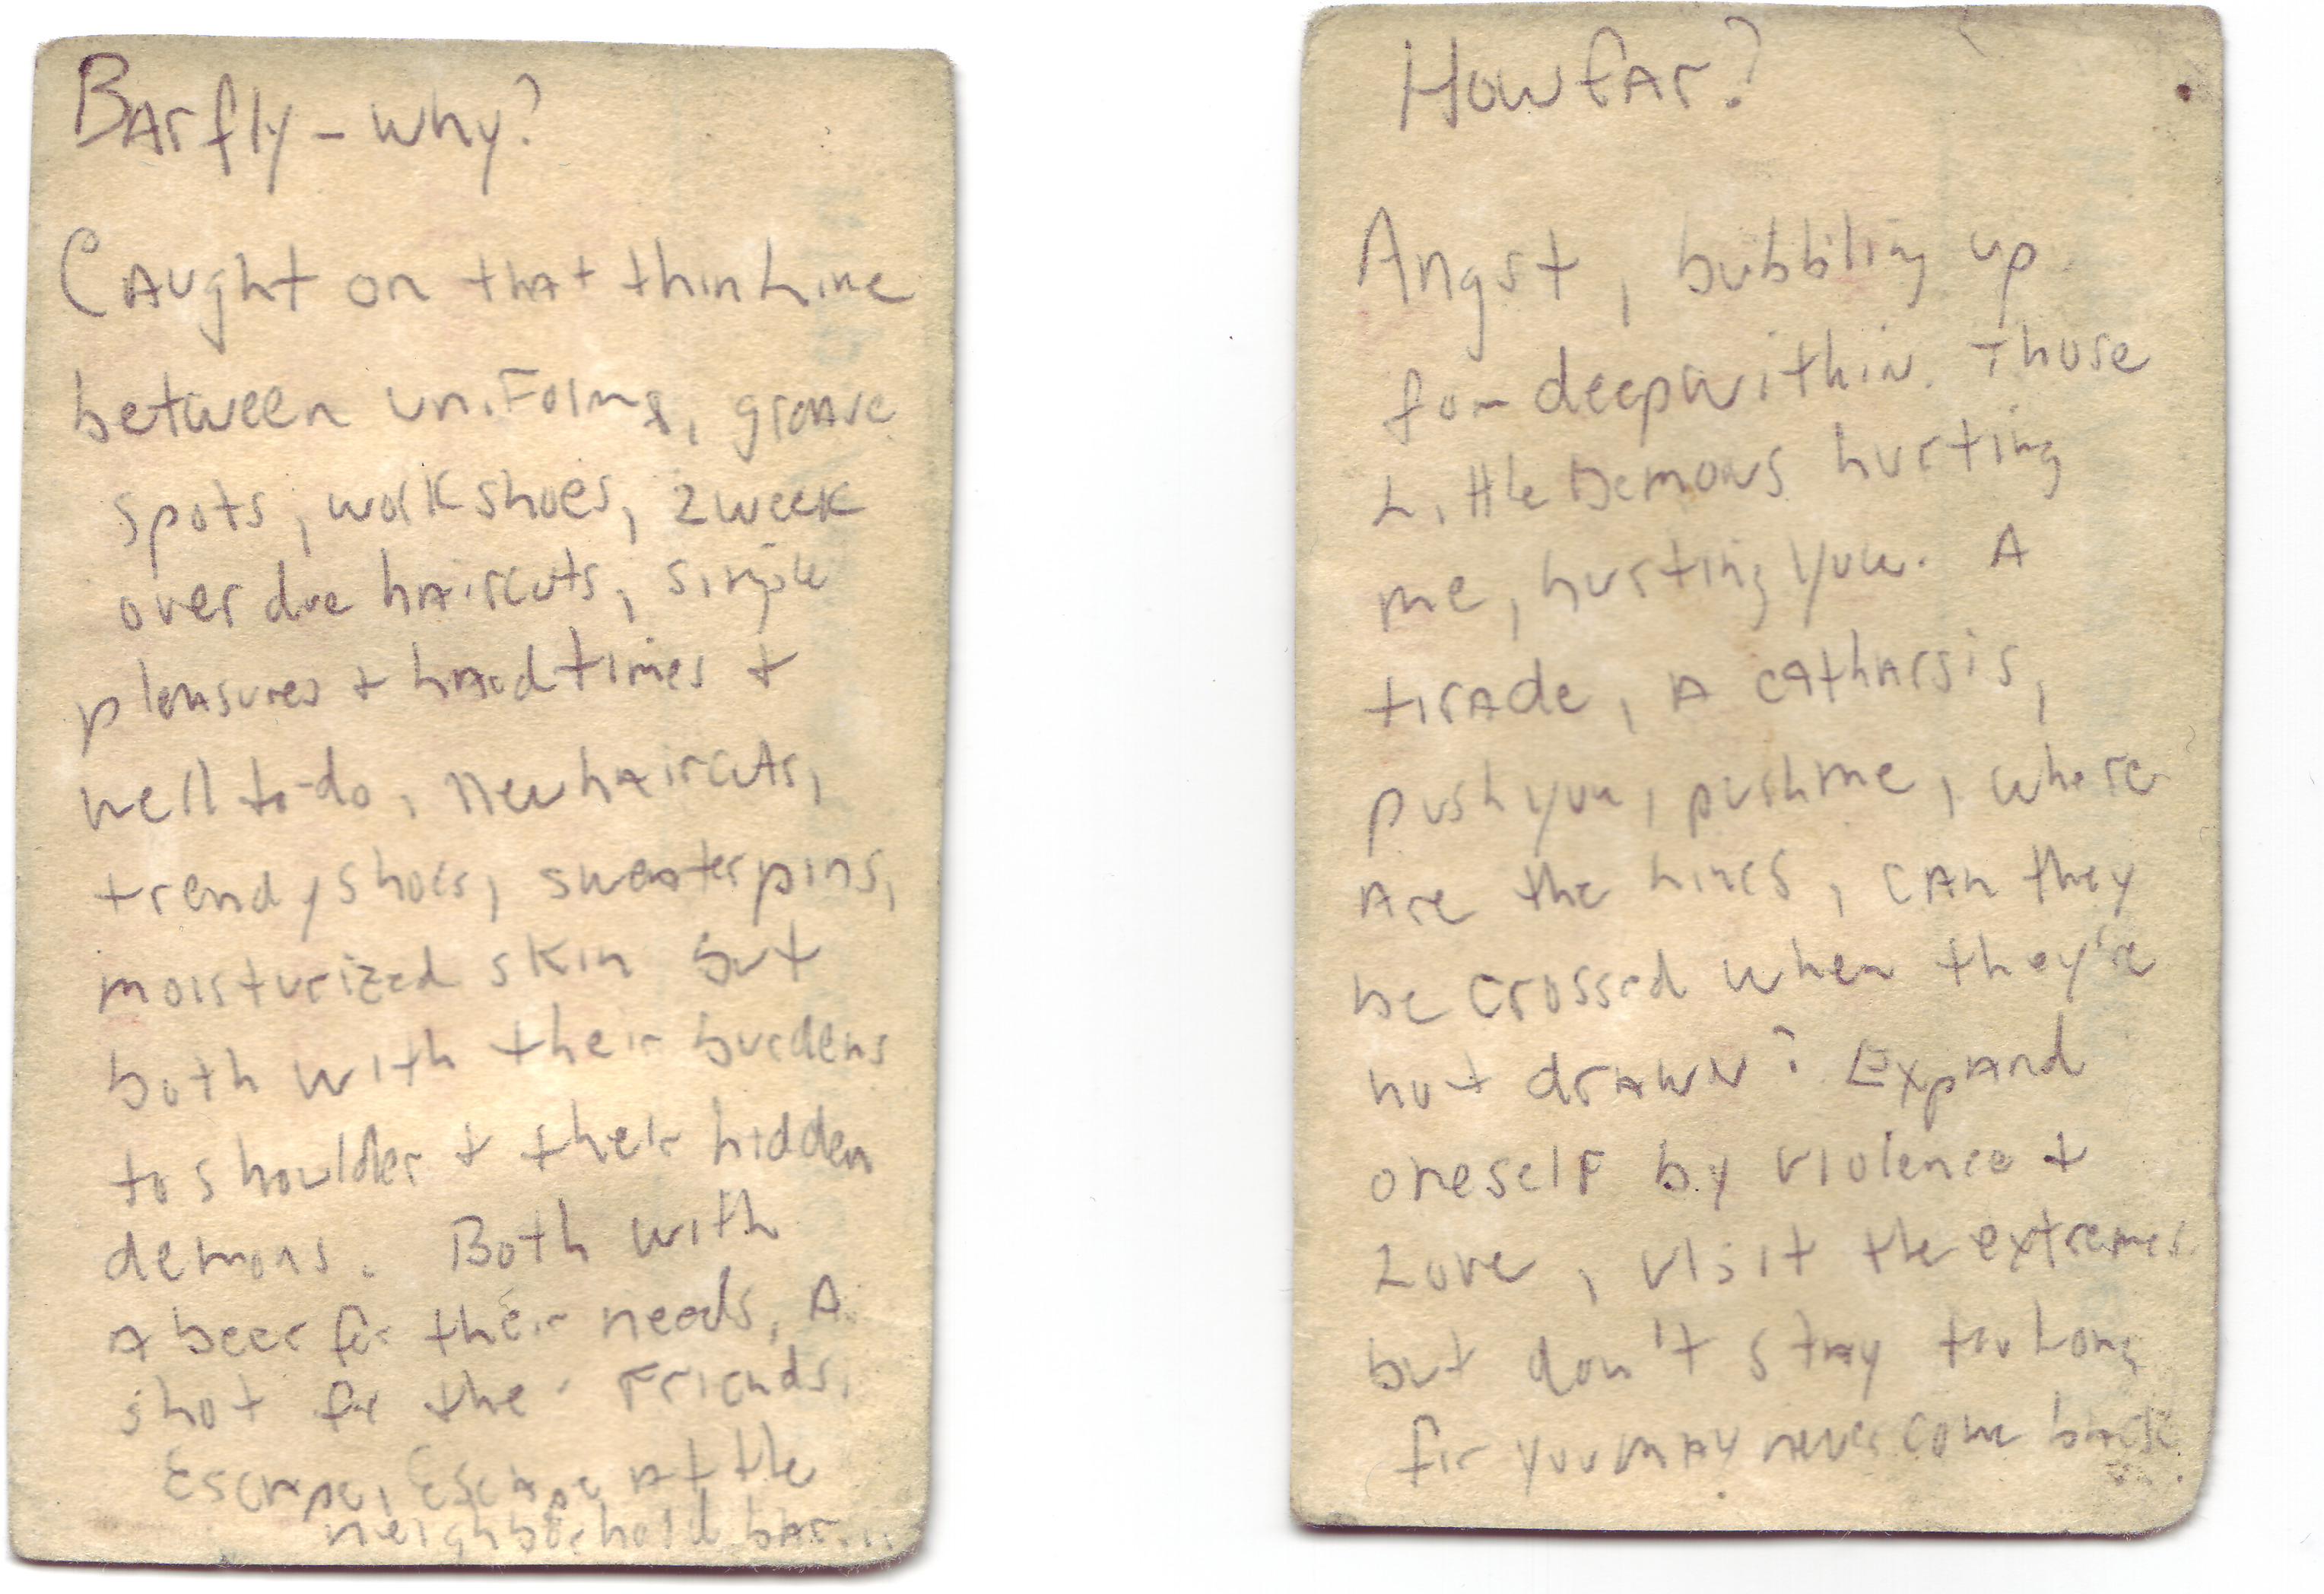 Barfly - why?
Caught on that thin Line
between uniforms, grease
spots, work shoes, 2 week
over due haircuts, simple
pleasures + hard times +
well to-do, new haircuts,
trendy shoes, sweater pins,
moisturized skin but
both with their burdens
to shoulder + their hidden
demons. Both with
A beer for their needs, A
shot for their Friends.
Escape, Escape at the
neighborhood bar...
How far?
Angst, bubbling up
for deep within. Those
Little Demons hurting
me, hurting you. A
tirade, a catharsis,
push you, push me, where
Are the Lines, can they
be crossed when they're
not drawn? Expand
oneself by violence +
Love, visit the extremes
but don't stay too Long
for you may never come back